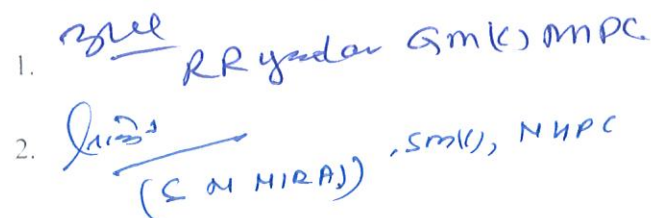 1. RR Yadav GM(C) NHPC
2.
(S M MIRAJ), SM(C), NHPC